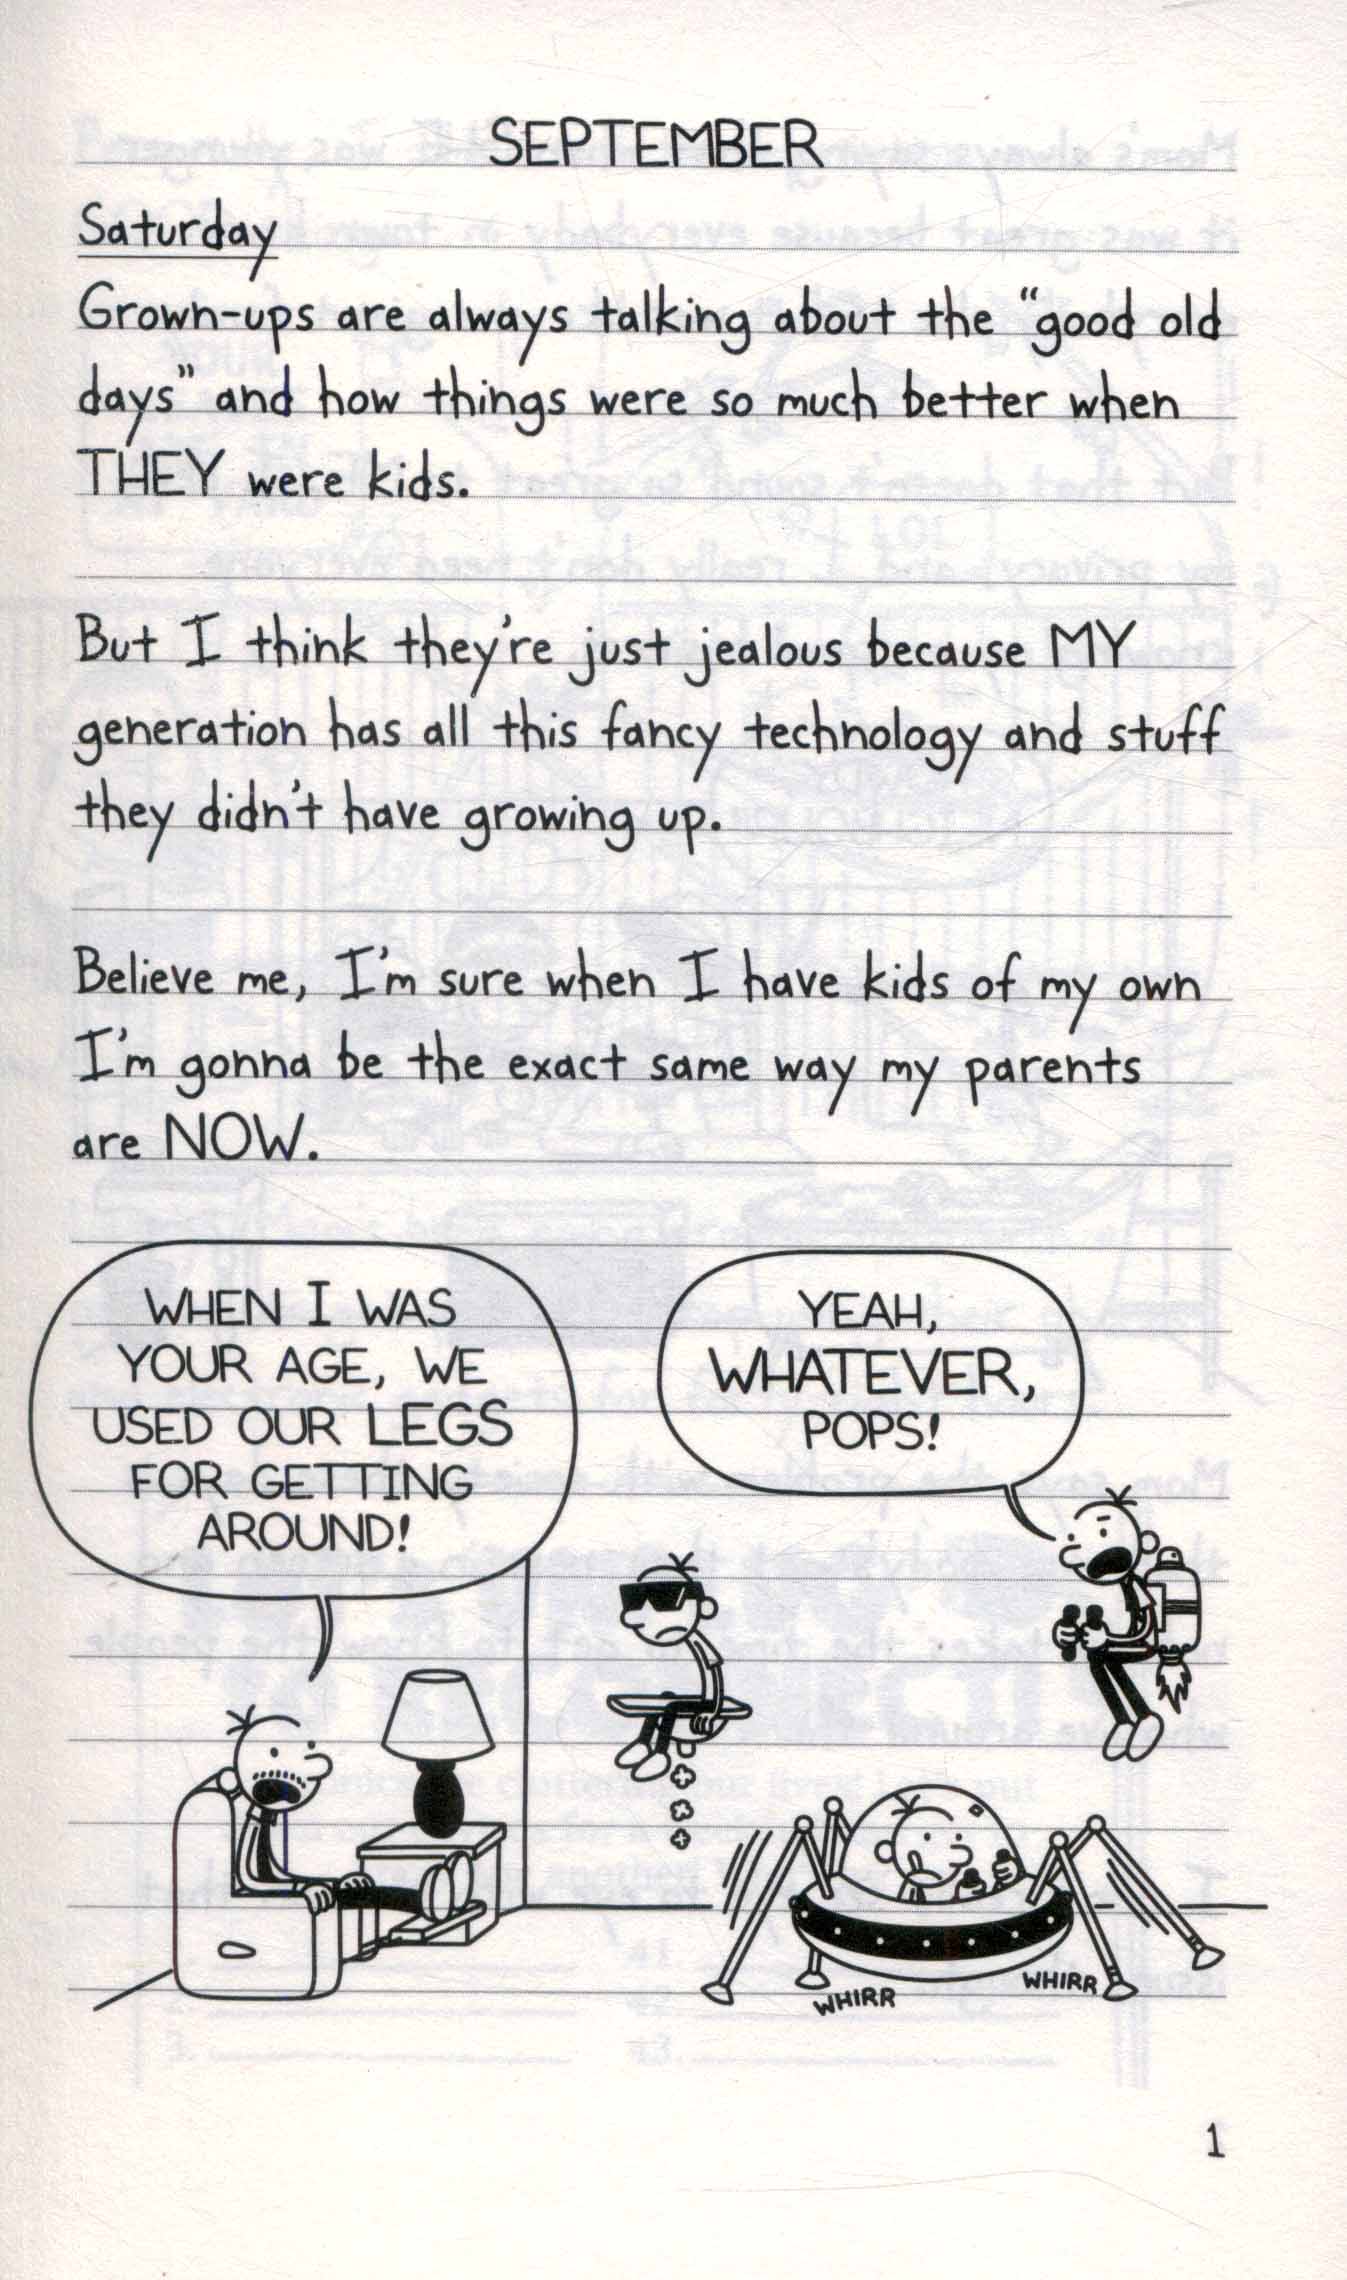 SEPTEMBER
Saturday
Grown-ups are always talking about the “good old
days” and how things were so much better when
THEY were kids.
But I think they’re just jealous because MY
generation has all this fancy technology and stuff
they didn’t have growing up.
Believe me, I’m sure when I have kids of my own
I’m gonna be the exact same way my parents
are NOW.
WHEN I WAS
YOUR AGE, WE
USED OUR LEGS
FOR GETTING
AROUND!
YEAH,
WHATEVER,
POPS!
WHIRR
WHIRR
1